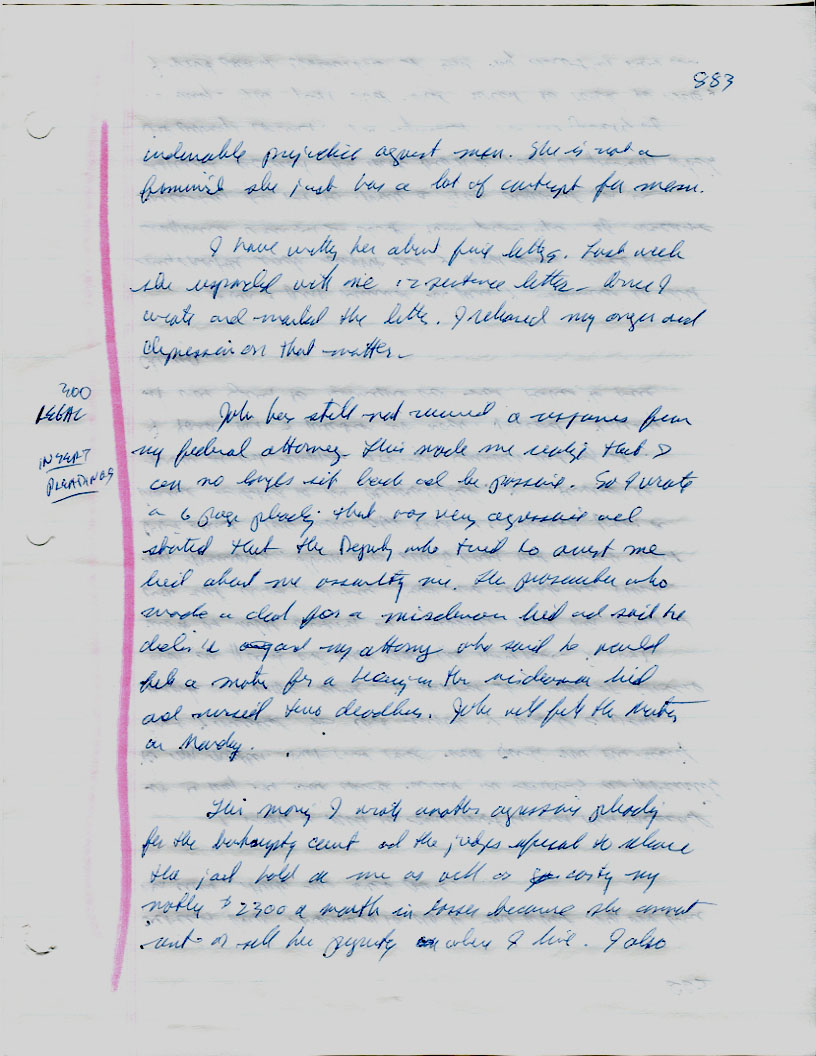 883
undeniable prejudice against men. She is not a
feminist she just has a lot of contempt for men.
I have written her about four letters. Last week
she responded with one sentence letter. Once I
wrote and mailed the letter. I released my anger and
depression on that matter.
300
LEGAL
INSERT
PLEADINGS
John has still not received a response from
my federal attorney. This made me realize that I
can no longer sit back and be passive. So I wrote
a 6 page pleading that was very agressive and
stated that the Deputy who tried to arrest me
lied about me assaulting me. The prosecutor who
made a deal for a misdemeanor lied and said he
didn't and my attorney who said he would
file a motion for a hearing on the misdemeanor lied
and missed two deadlines. John will file the
on Monday.
This morning I wrote another agressive pleading
for the bankruptcy court and the judges refusal to release
the jail hold on me as well as costing my
mother $2300 a month in losses because she cannot
rent or sell her property where I live. I also